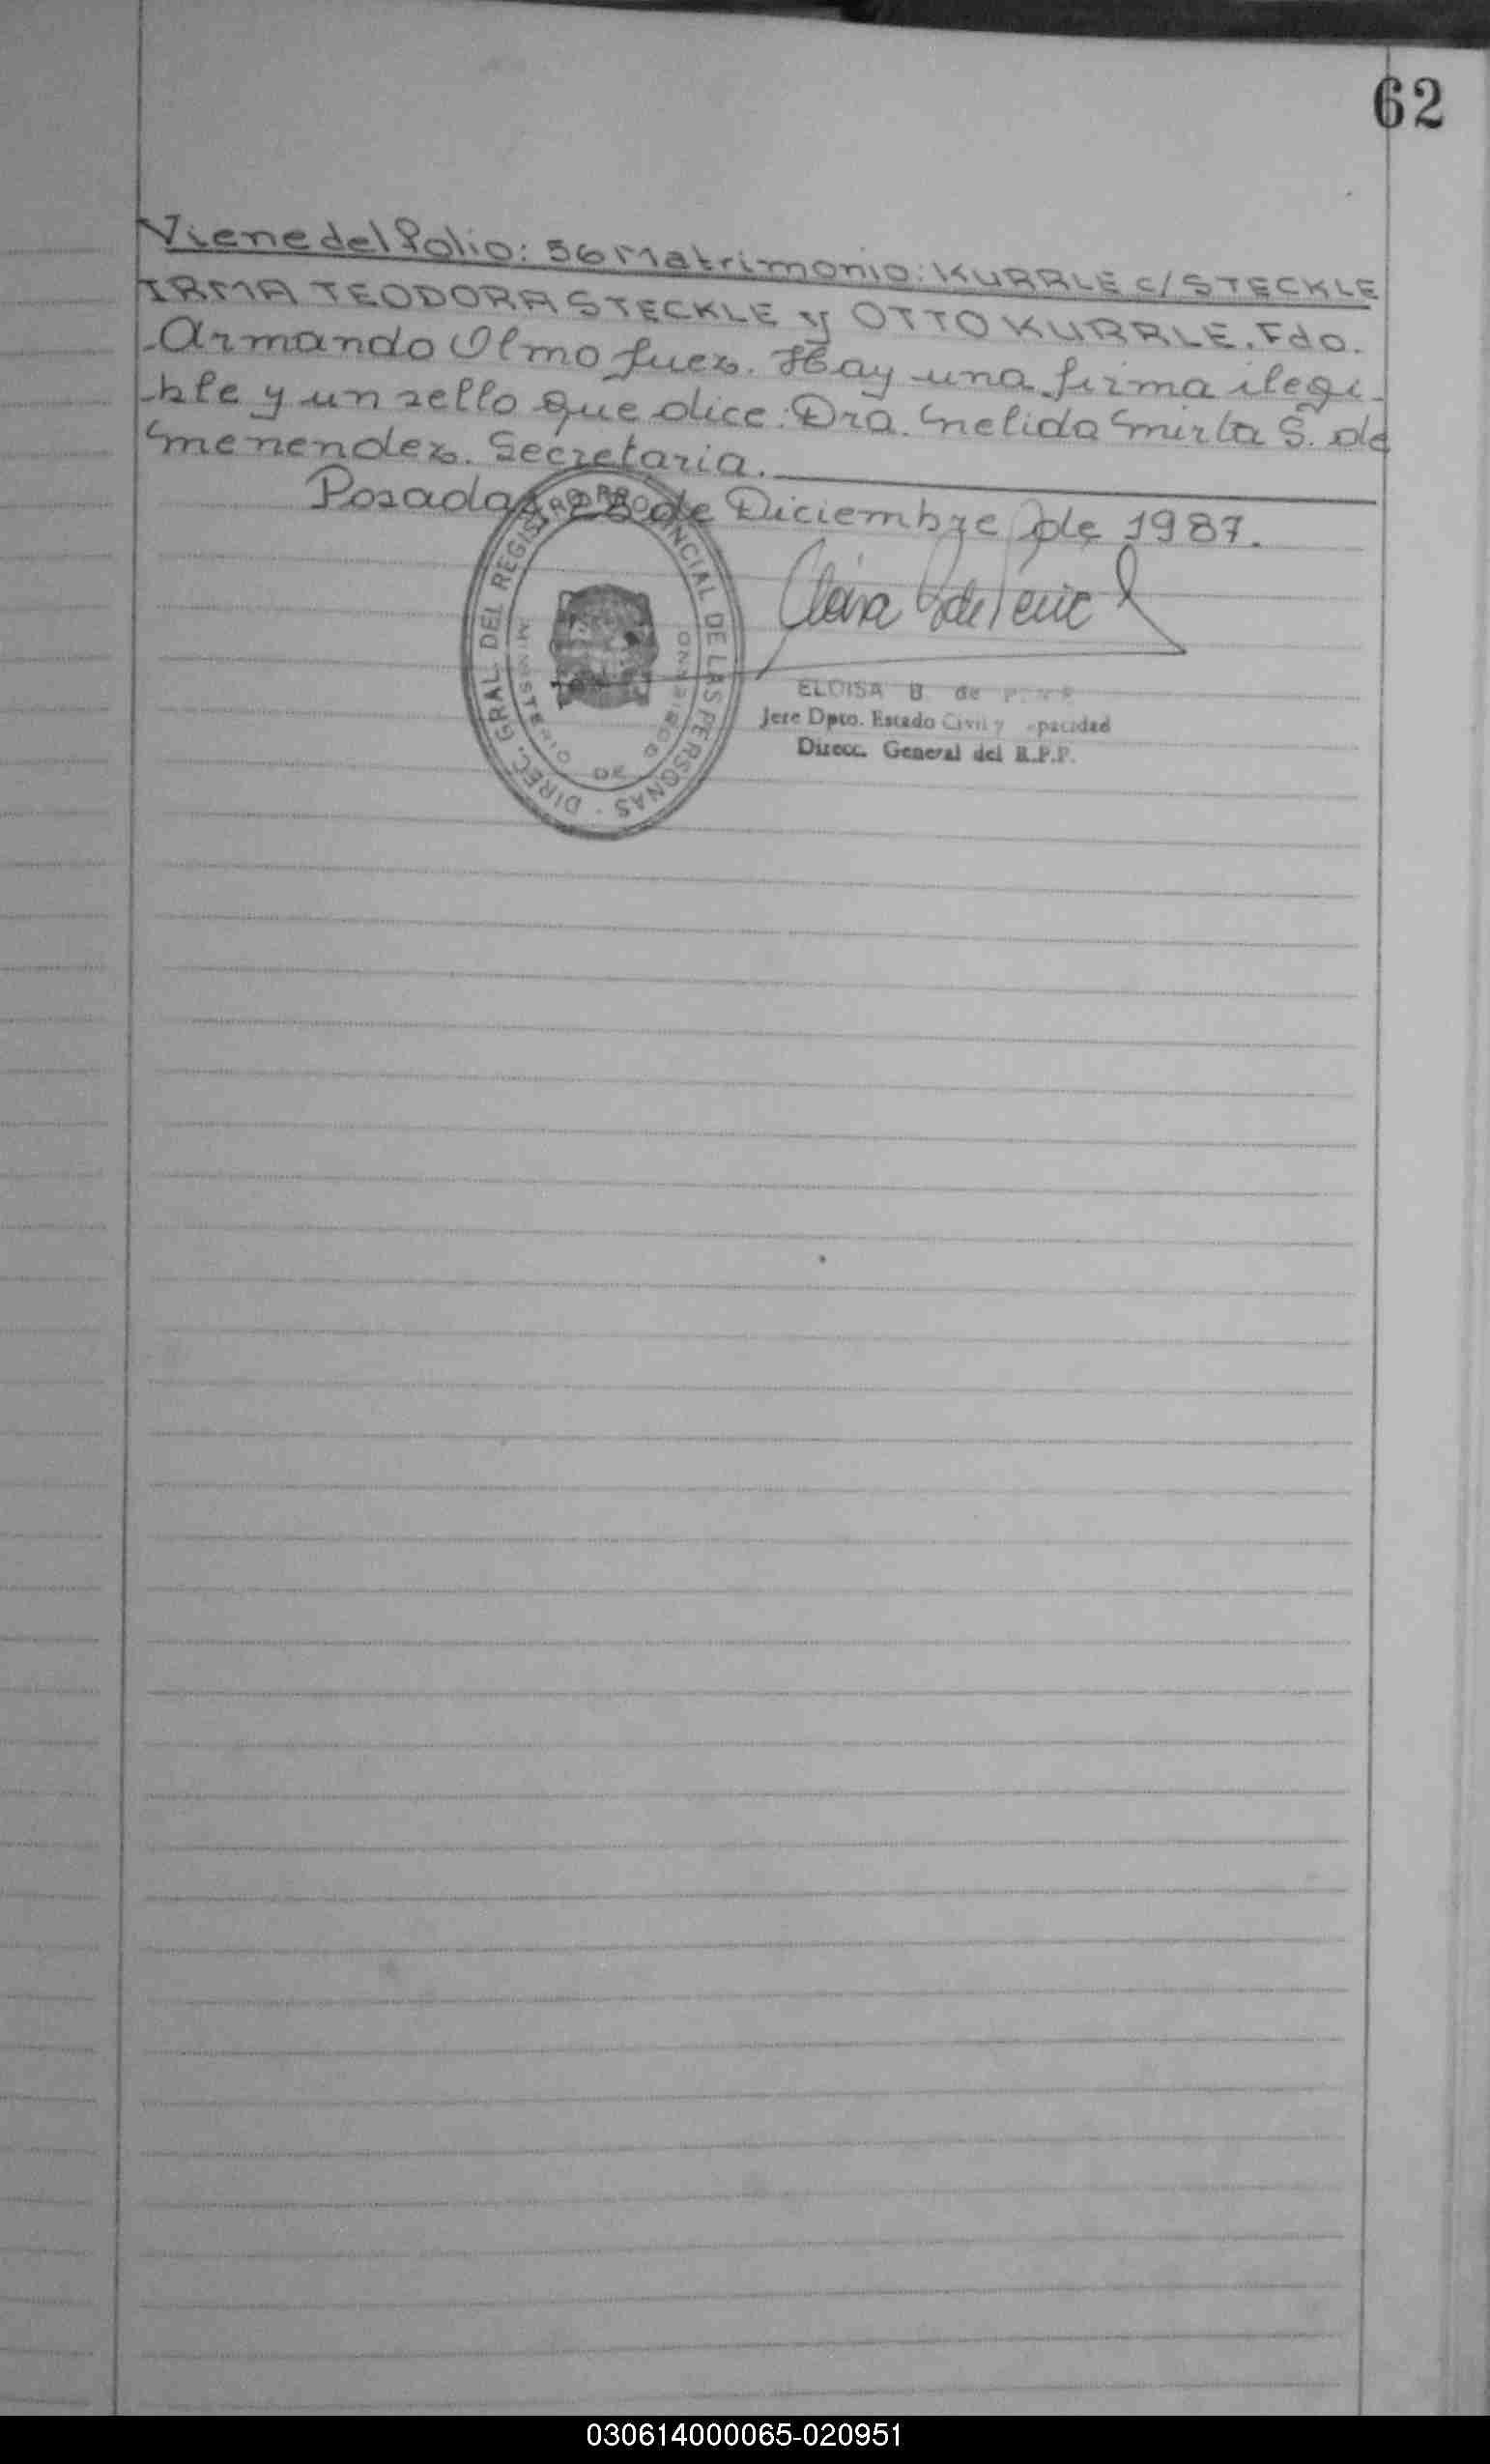 62
Viene del folio: 56 Matrimonio: KURRLE c/ STECKLE
IRMA TEODORA STECKLE y OTTO KURRLE. Fdo.
Armando Olmo Juez. Hay una firma ilegi-
ble y un sello que dice: Dra. Nelida Mirta S. de
Menendez. Secretaria.
Posadas, 28 de Diciembre de 1987.
DIREC. GRAL. DEL REGISTRO PROVINCIAL DE LAS PERSONAS -
MINISTERIO DE GOBIERNO
ELOISA B. de
Jefe Dpto. Estado Civil y
Direcc. General del R.P.P.
030614000065-020951